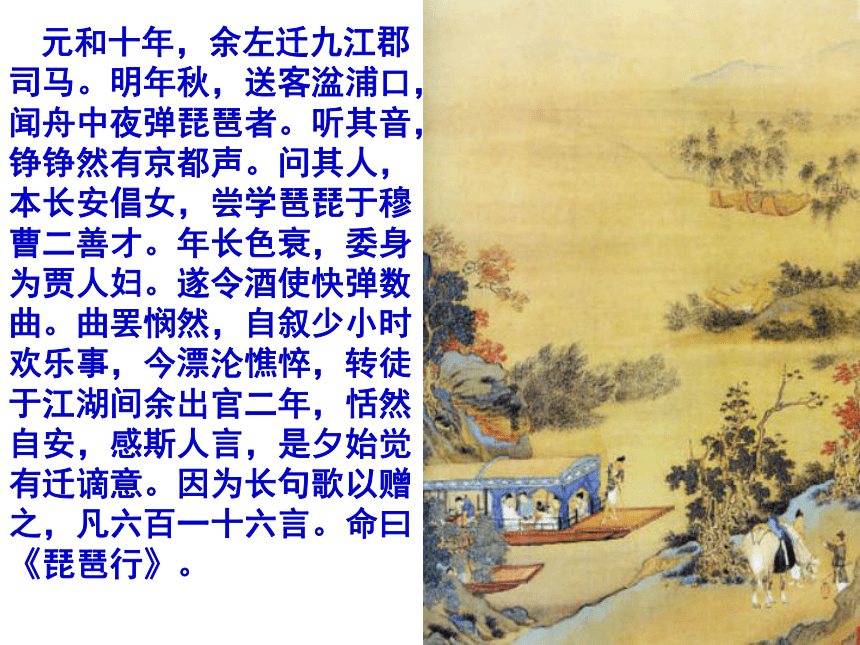 元和十年，余左迁九江郡
司马。明年秋，送客湓浦口，
闻舟中夜弹琵琶者。听其音，
铮铮然有京都声。问其人，
本长安倡女，尝学琶琵于穆
曹二善才。年长色衰，委身
为贾人妇。遂令酒使快弹数
曲。曲罢悯然，自叙少小时
欢乐事，今漂沦憔悴，转徒
于江湖间余出官二年，恬然
自安，感斯人言，是夕始觉
有迁谪意。因为长句歌以赠
之，凡六百一十六言。命曰
《琵琶行》。